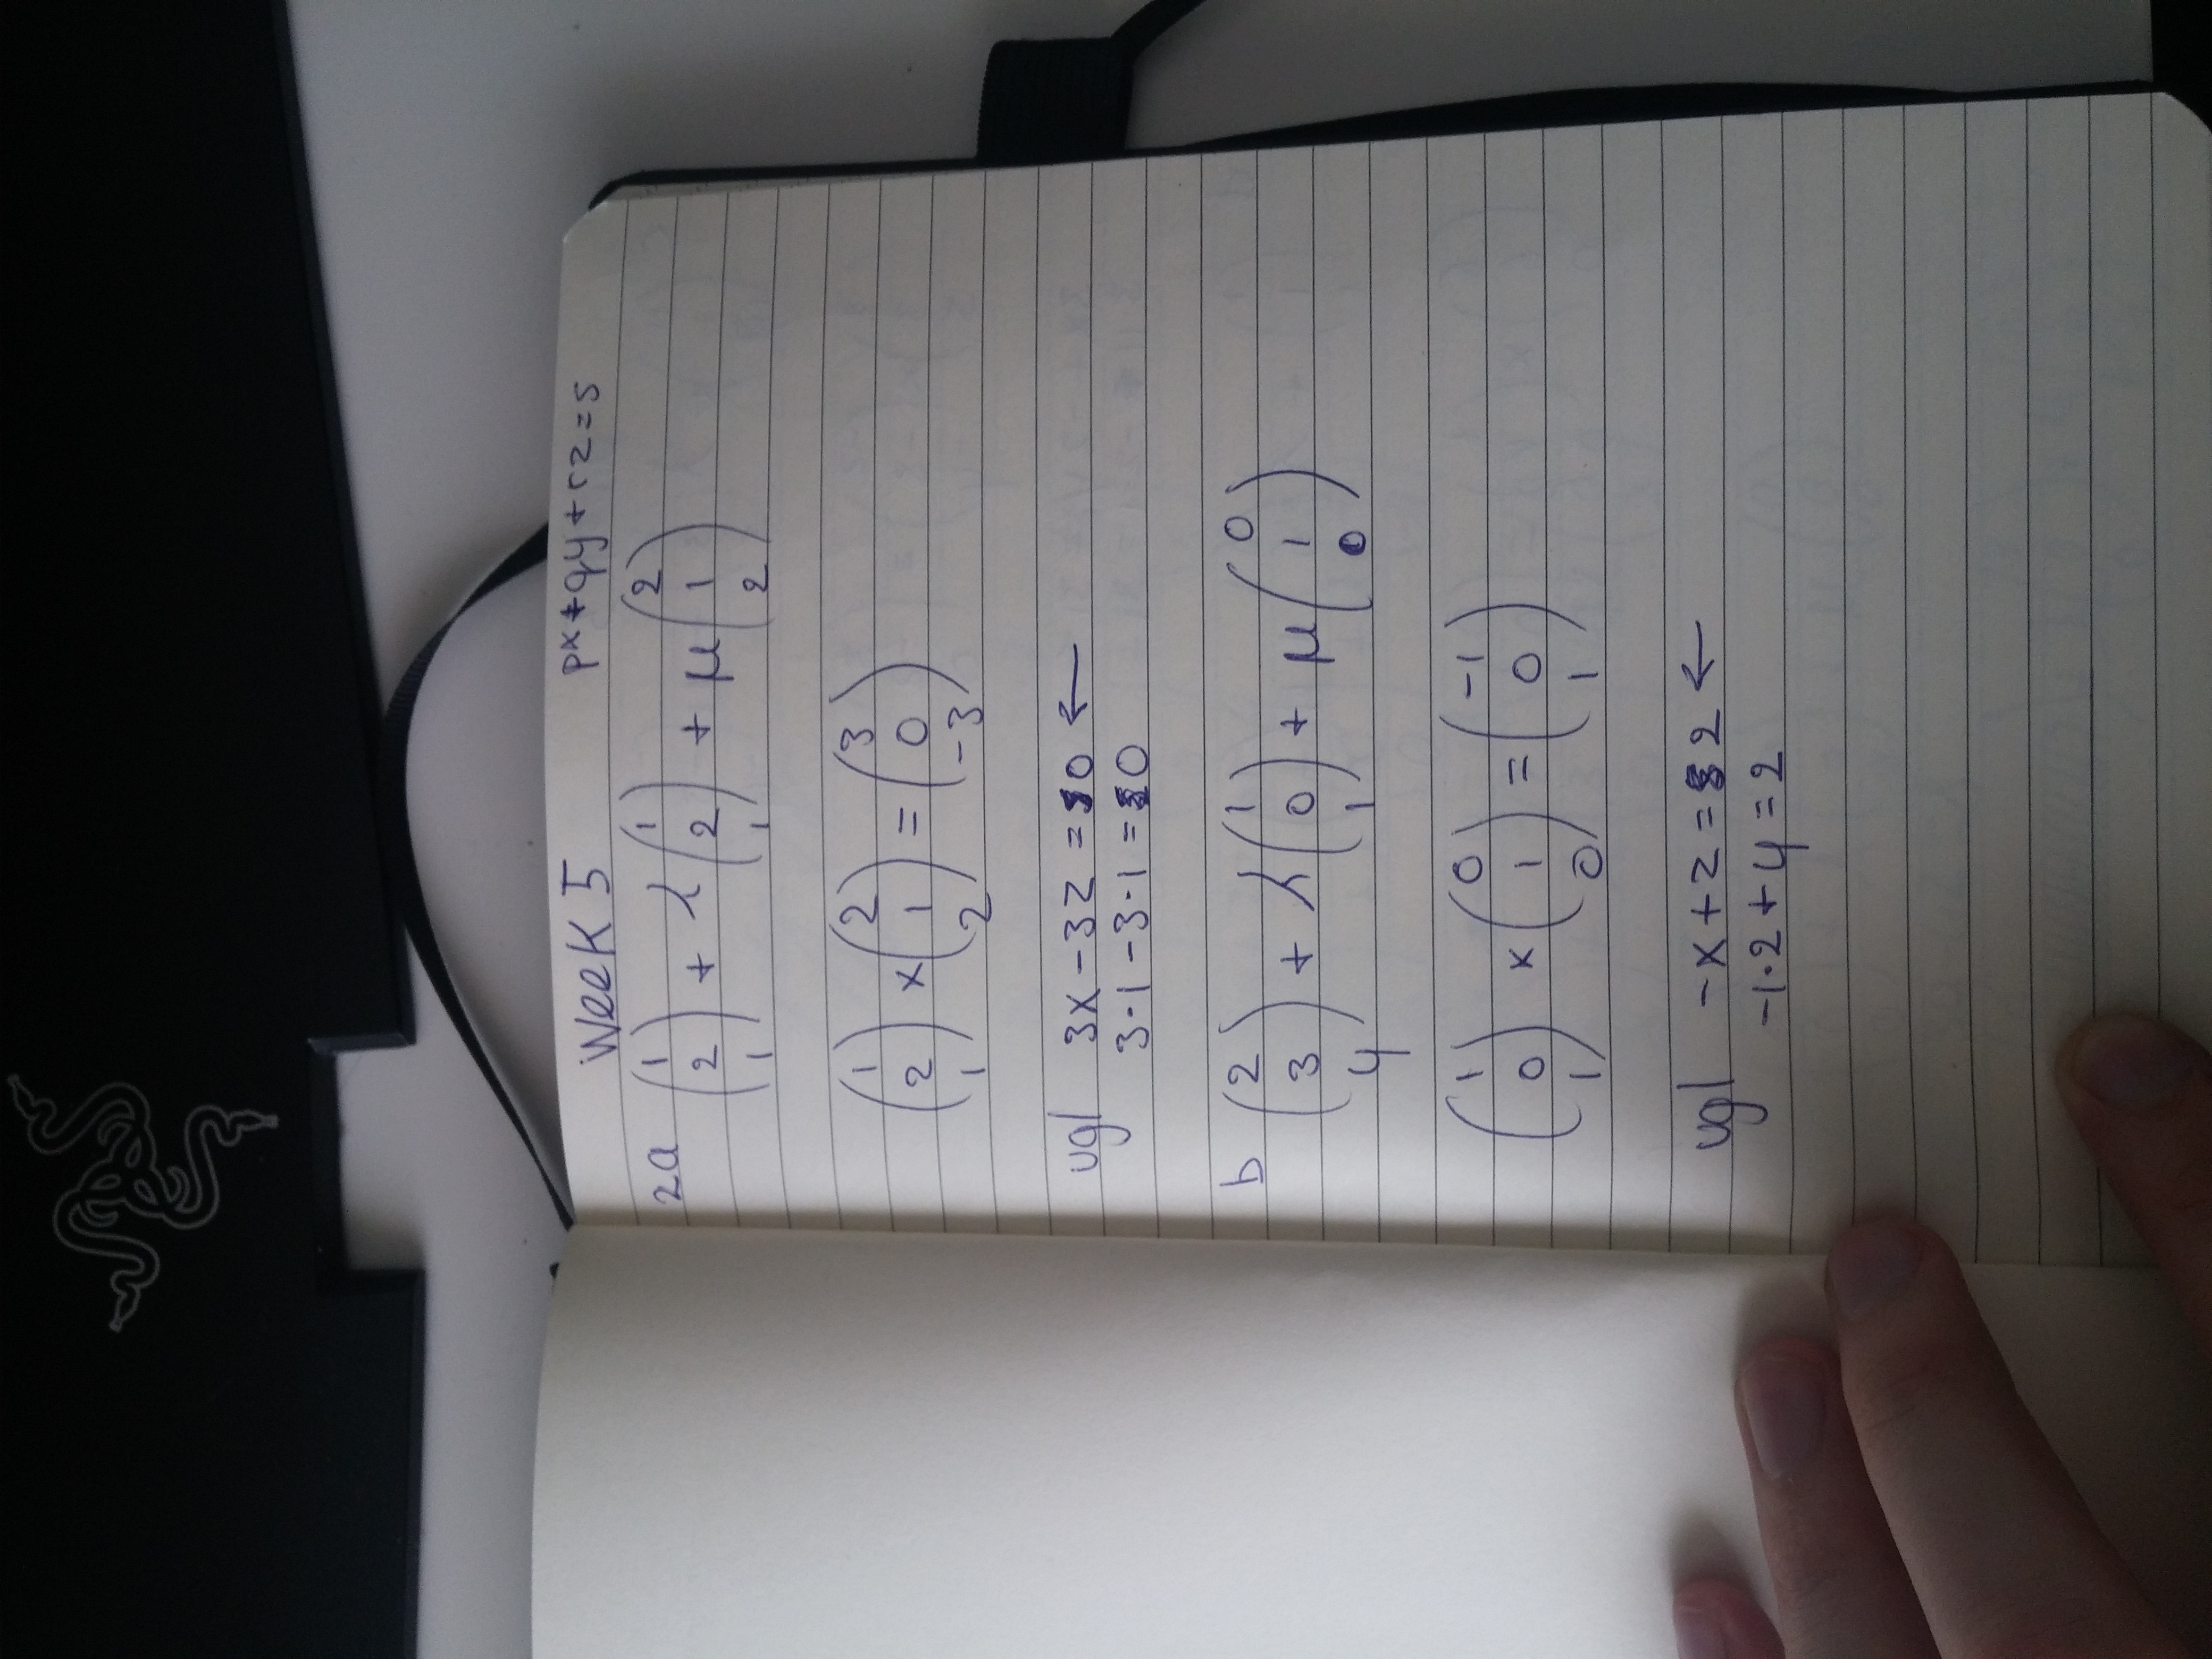 Week 5 px+qy+rz=s
2a (1 2 1) + λ (1 2 1) + μ (2 1 2)
(1 2 1) × (2 1 2) = (3 0 -3)
vgl 3x-3z = 0 ←
3·1-3·1 = 0
b (2 3 4) + λ (1 0 1) + μ (0 1 0)
(1 0 1) × (0 1 0) = (-1 0 1)
vgl -x+z = 2 ←
-1·2+4 = 2